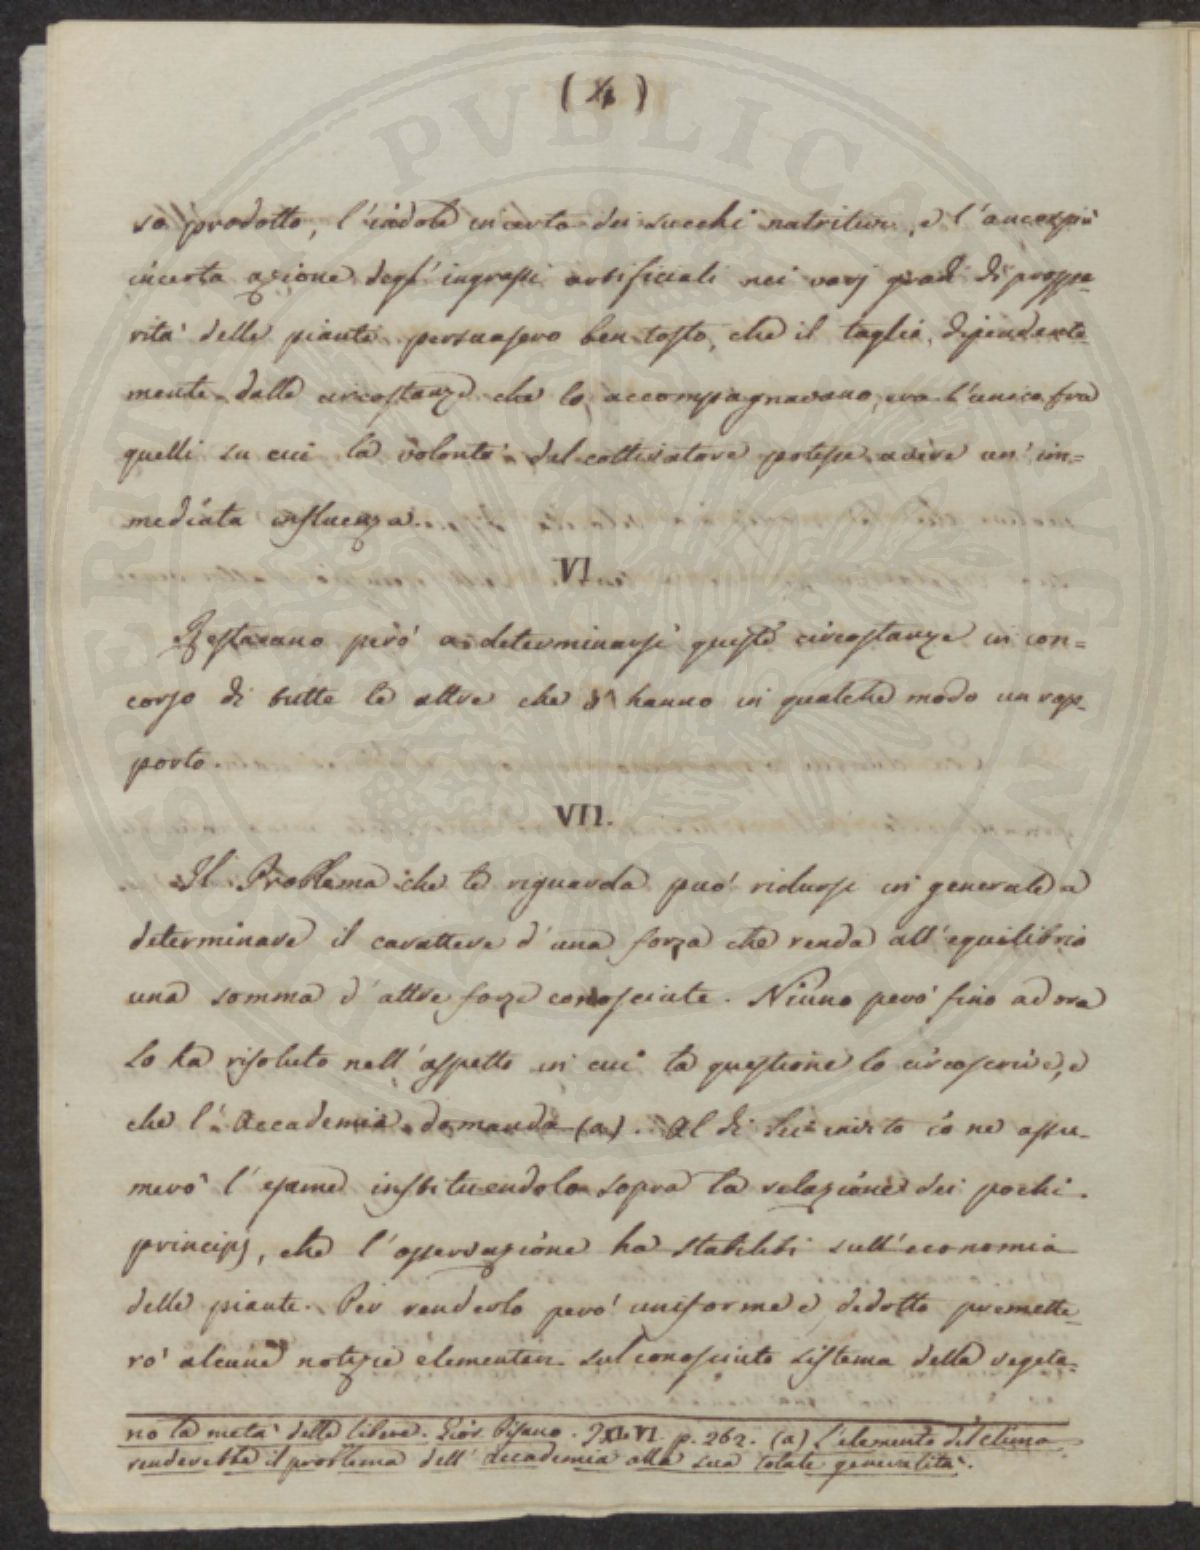 ( 4 )
so prodotto, l'indole incerta dei succhi nutritivi, e l'ancor più
incerta azione degl'ingrassi artificiali nei varj gradi di prospe-
rità delle piante persuasero ben tosto, che il taglio, dipendente-
mente dalle circostanze che lo accompagnavano, era l'unico fra
quelli su cui la volontà del coltivatore potesse avere un'im=
mediata influenza.
VI
Restavano però a determinarsi queste circostanze in con=
corso di tutte le altre che v'hanno in qualche modo un rap-
porto.
VII.
Il Problema che le riguarda può ridursi in generale a
determinare il carattere d'una forza che renda all'equilibrio
una somma d'altre forze conosciute. Niuno però fino ad ora
lo ha risoluto nell'aspetto in cui la questione lo circoscrive, e
che l'Accademia domanda (a). Al di Lei invito io ne assu-
merò l'esame instituendolo sopra la relazione dei pochi
principj, che l'osservazione ha stabiliti sull'economia
delle piante. Per renderlo però uniforme e dedotto premette-
rò alcune notizie elementari sul conosciuto sistema della vegeta-
no la metà delle libere. Gior. Pisano. T. XLVI. p. 262. (a) L'elemento del clima
renderebbe il problema dell'Accademia alla sua totale generalità.